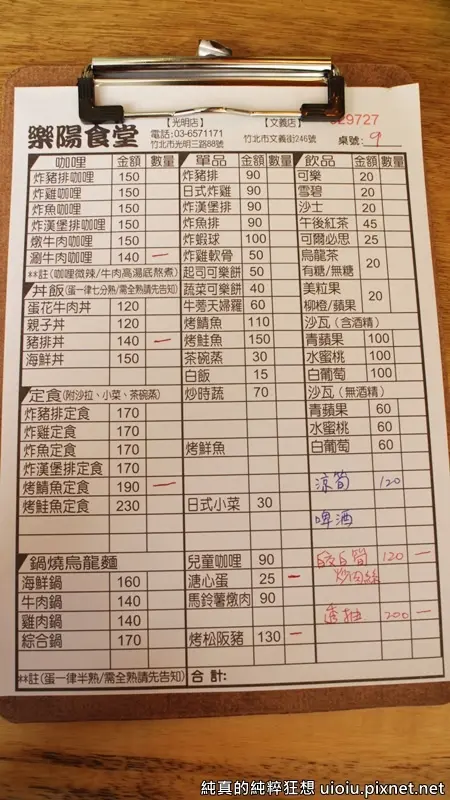 樂陽食堂
【光明店】
電話:03-6571171
竹北市光明三路88號
【文義店】
竹北市文義街246號
029727
桌號: 9
咖哩 金額 數量
炸豬排咖哩 150
炸雞咖哩 150
炸魚咖哩 150
炸漢堡排咖哩 150
燉牛肉咖哩 150
涮牛肉咖哩 140 一
**註(咖哩微辣/牛肉高湯底熬煮)
丼飯(蛋一律七分熟/需全熟請先告知)
蛋花牛肉丼 120
親子丼 120
豬排丼 140 一
海鮮丼 150
定食(附沙拉、小菜、茶碗蒸)
炸豬排定食 170
炸雞定食 170
炸魚定食 170
炸漢堡排定食 170
烤鯖魚定食 190 一
烤鮭魚定食 230
鍋燒烏龍麵
海鮮鍋 160
牛肉鍋 140
雞肉鍋 140
綜合鍋 170
**註(蛋一律半熟/需全熟請先告知)
單品 金額 數量
炸豬排 90
日式炸雞 90
炸漢堡排 90
炸魚排 90
炸蝦球 100
炸雞軟骨 50
起司可樂餅 50
蔬菜可樂餅 40
牛蒡天婦羅 60
烤鯖魚 110
烤鮭魚 150
茶碗蒸 30
白飯 15
炒時蔬 70
烤鮮魚
日式小菜 30
兒童咖哩 90
溏心蛋 25 一
馬鈴薯燉肉 90
烤松阪豬 130 一
合計:
飲品 金額 數量
可樂 20
雪碧 20
沙士 20
午後紅茶 45
可爾必思 25
烏龍茶
有糖/無糖 20
美粒果
柳橙/蘋果 20
沙瓦(含酒精)
青蘋果 100
水蜜桃 100
白葡萄 100
沙瓦(無酒精)
青蘋果 60
水蜜桃 60
白葡萄 60
涼筍 120
啤酒
茭白筍 120 一
炒肉絲
透抽 200 一
純真的純粹狂想 uioiu.pixnet.net